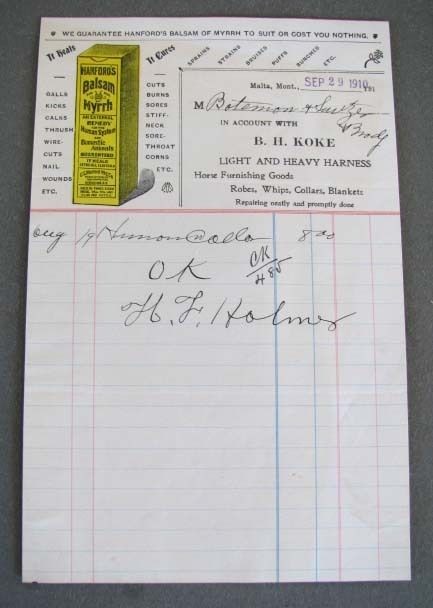 WE GUARANTEE HANFORD'S BALSAM OF MYRRH TO SUIT OR COST YOU NOTHING.
It Heals
It Cures
SPRAINS
STRAINS
BRUISES
PUFFS
BUNCHES
ETC.
GALLS
KICKS
CALKS
THRUSH
WIRE-
CUTS
NAIL
WOUNDS
ETC.
HANFORD'S
Balsam
OF
Myrrh
AN EXTERNAL
REMEDY
Human System
AND
Domestic
Animals
CUTS
BURNS
SORES
STIFF-
NECK
SORE-
THROAT
CORNS
ETC.
Malta, Mont., SEP 29 1910 191
M Bateman & Switzer
IN ACCOUNT WITH
B. H. KOKE
LIGHT AND HEAVY HARNESS
Horse Furnishing Goods
Robes, Whips, Collars, Blankets
Repairing neatly and promptly done
Aug 19 8 00
OK
CK
485
H. F. Holmes